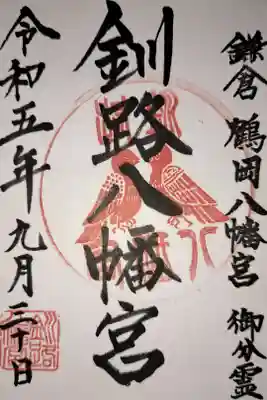 鎌倉 鶴岡八幡宮 御分霊
釧路八幡宮
令和五年九月三十日